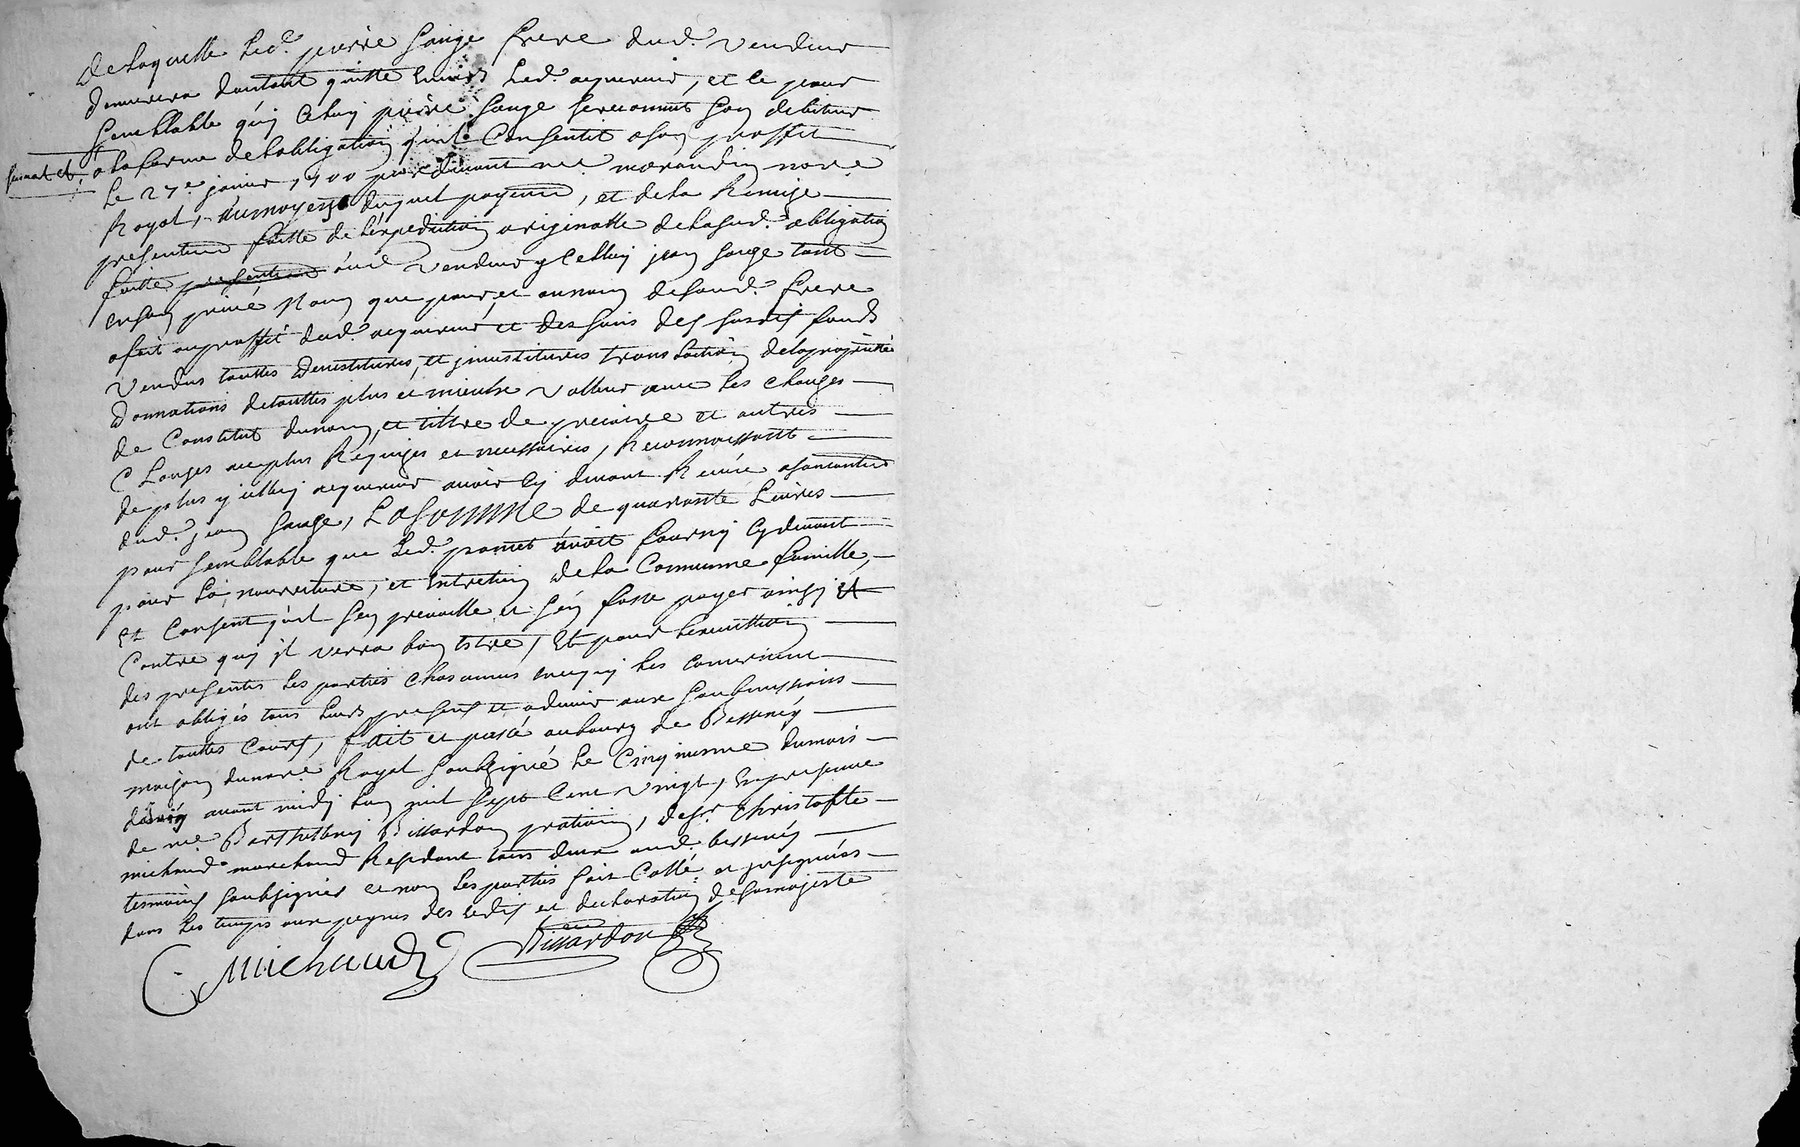 de laquelle led. pierre Sauge frere dud. vendeur
demeurera dautant quitte envers led. aquereur, et ce pour
semblable qu'iceluy pierre Sauge se reconnut son debiteur
a la forme de l'obligation qu'il consentit a son proffit
le 27e janvier 1700 par devant me morandin nore
Royal, au moyen duquel payement, et de la Remise
presentem faitte de l'expedition originalle de la sud. obligation
faitte aud. vendeur ycelluy jean Sauge tant
en son privé nom que pour et au nom de soud. frere
a fait au proffit dud. aquereur et des siens des susdits fonds
vendus touttes devestitures, et jnvestitures translation de la proprietté
donnations de touttes plus et mieulx valleur avec les clauses
de Constitut du nom, et tiltre de precaire et autres
Clauses au plus Requises et necessaires, Reconnoissant
de plus ycelluy aquereur avoir cy devant Receu
dud. jean Sauge, La Somme de quarante Livres
pour semblable que led. avoit fourny cy devant
pour la nourriture, et Entretien de la Commune famille,
et Consent qu'il s'en prevaille et s'en fasse payer ainsy et
Contre qui jl verra bon Estre, Et pour l'execution
des presentes les parties chascunes en ce qui les concernent
ont obligés tous leurs presens et advenir aux soubmissions
de touttes Cours, fait et passé au bourg de Bessenay
maison du nore Royal soubsigné le Cinquiesme du mois
avant midy lan mil Sept Cent vingt, En presence
de me Barthelemy Bissardon praticien, de sr Christofle
michaud marchand Residant tous deux aud. bessenay
tesmoins soubsignés et non les parties
dans les temps aux peynes des Edits et declaration de Sa majesté
C Michaud Bissardon